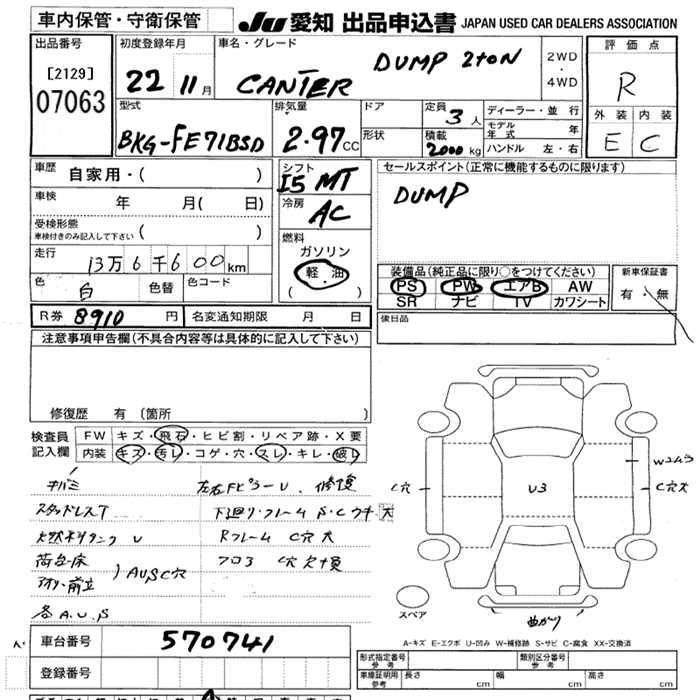 車内保管・守衛保管
JU 愛知 出品申込書 JAPAN USED CAR DEALERS ASSOCIATION
出品番号
[2129]
07063
初度登録年月
22 11月
車名・グレード
DUMP 2toN
CANTER
2WD
・
4WD
評価点
R
外装 内装
E C
型式
BKG-FE71BSD
排気量
2.97cc
ドア
形状
定員
3人
積載
2000kg
ディーラー・並行
モデル年式 年
ハンドル 左・右
車歴
自家用・( )
車検
年 月( 日)
受検形態
車検付きのみ記入して下さい ( )
走行
13万6千600km
色
白
色替
色コード
シフト
I5 MT
冷房
AC
燃料
ガソリン
軽・油
( )
セールスポイント(正常に機能するものに限ります)
DUMP
装備品(純正品に限り○をつけてください)
PS PW エアB AW
SR ナビ TV カワシート
新車保証書
有・無
後日品
R券 8910円
名変通知期限 月 日
注意事項申告欄(不具合内容等は具体的に記入して下さい)
修復歴 有(箇所 )
検査員記入欄
FW キズ・飛石・ヒビ割・リペア跡・X要
内装 キズ・汚レ・コゲ・穴・スレ・キレ・破レ
キバミ
スタッドレスT
燃料タンク U
荷台床
前立
AUSC穴
各A.U.S
左右Fピラー U、修復
下廻り・フレーム S・C ウキ 大
Rフレーム C穴 大
フロア C穴 欠損
U3
C穴
C穴大
曲がり
スペア
A-キズ E-エクボ U-凹み W-補修跡 S-サビ C-腐食 XX-交換済
車台番号
570741
登録番号
形式指定番号
参考
類別区分番号
参考
車庫証明用
参考
長さ cm
幅 cm
高さ cm